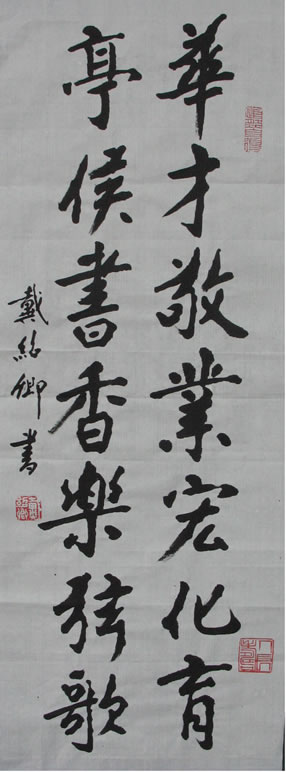 華才敬業宏化育
亭侯書香樂弦歌
戴紹卿書